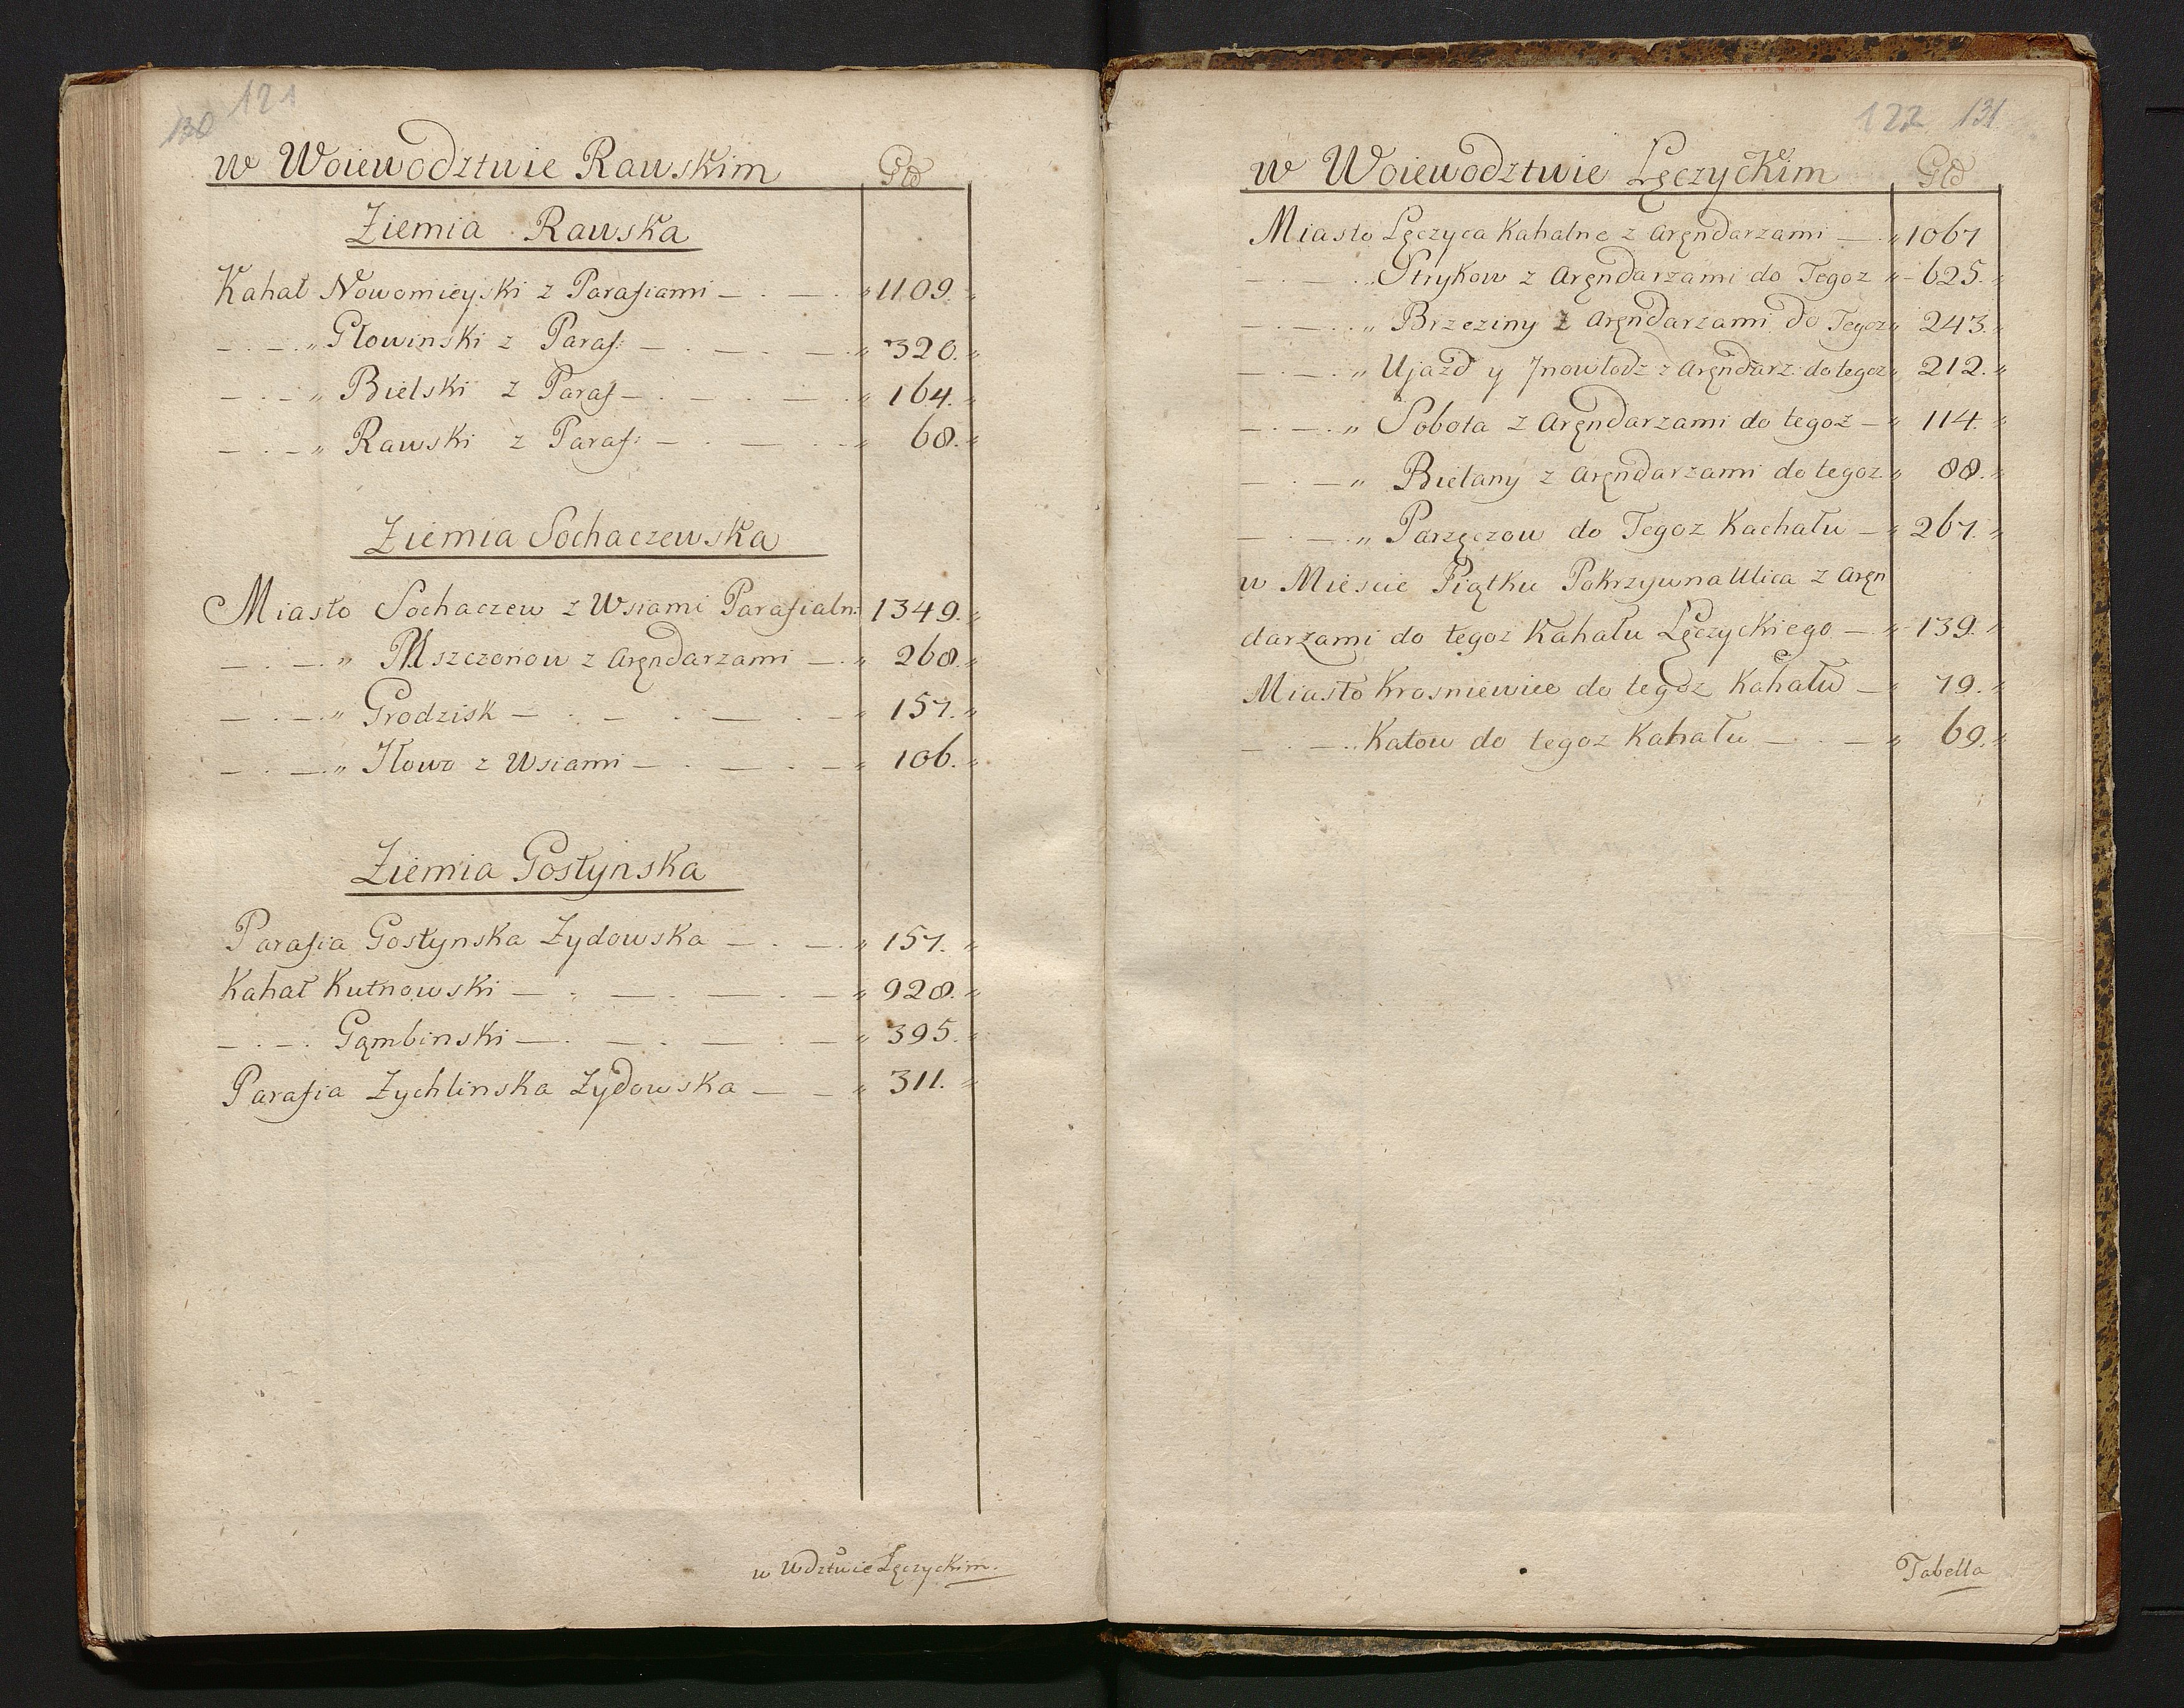 130 121
w Woiewodztwie Rawskim Głd
Ziemia Rawska
Kahał Nowomieyski z Parafiami — . — . „ 1109. „
— . — . „ Głowinski z Paraf: — . — . — . „ 320. „
— . — „ Bielski z Paraf — . — . — . „ 164. „
— . — „ Rawski z Paraf: — . — . — „ 68. „
Ziemia Sochaczewska
Miasto Sochaczew z Wsiami Parafialn: 1349. „
— . — . „ Mszczonow z Aręndarzami — . „ 268. „
— . — . „ Grodzisk — . — . — . — „ 157. „
— . — . „ Iłowo z Wsiami — . — . — „ 106. „
Ziemia Gostynska
Parafia Gostynska Zydowska — . — . „ 157. „
Kahał Kutnowski — . — . — . — „ 928. „
— . — . Gąmbinski — . — . — . — „ 395. „
Parafia Zychlinska Zydowska — — „ 311. „
w Wdztwie Lęczyckim.
122 131
w Woiewodztwie Lęczyckim Głd
Miasto Lęczyca Kahalne z Aręndarzami — . „ 1067
— . — . „ Strykow z Aręndarzami do Tegoz „ 625. „
— . — . „ Brzeziny z Aręndarzami do Tegoz „ 243. „
— . — . „ Ujazd y Jnowłodz z Aręndarz: do tegoz „ 212. „
— . — . „ Sobota z Aręndarzami do tegoz — „ 114. „
— . — „ Bielany z Aręndarzami do tegoz „ 88. „
— . — . „ Parzęczow do Tegoz Kachału — „ 267. „
w Miescie Piątku Pokrzywna Ulica z Aręn
darzami do tegoz Kahału Lęczyckiego — . „ 139. „
Miasto Krosniewice do tegoz Kahału — „ 79. „
— . — . . Katow do tegoz Kahału — . — „ 69. „
Tabella